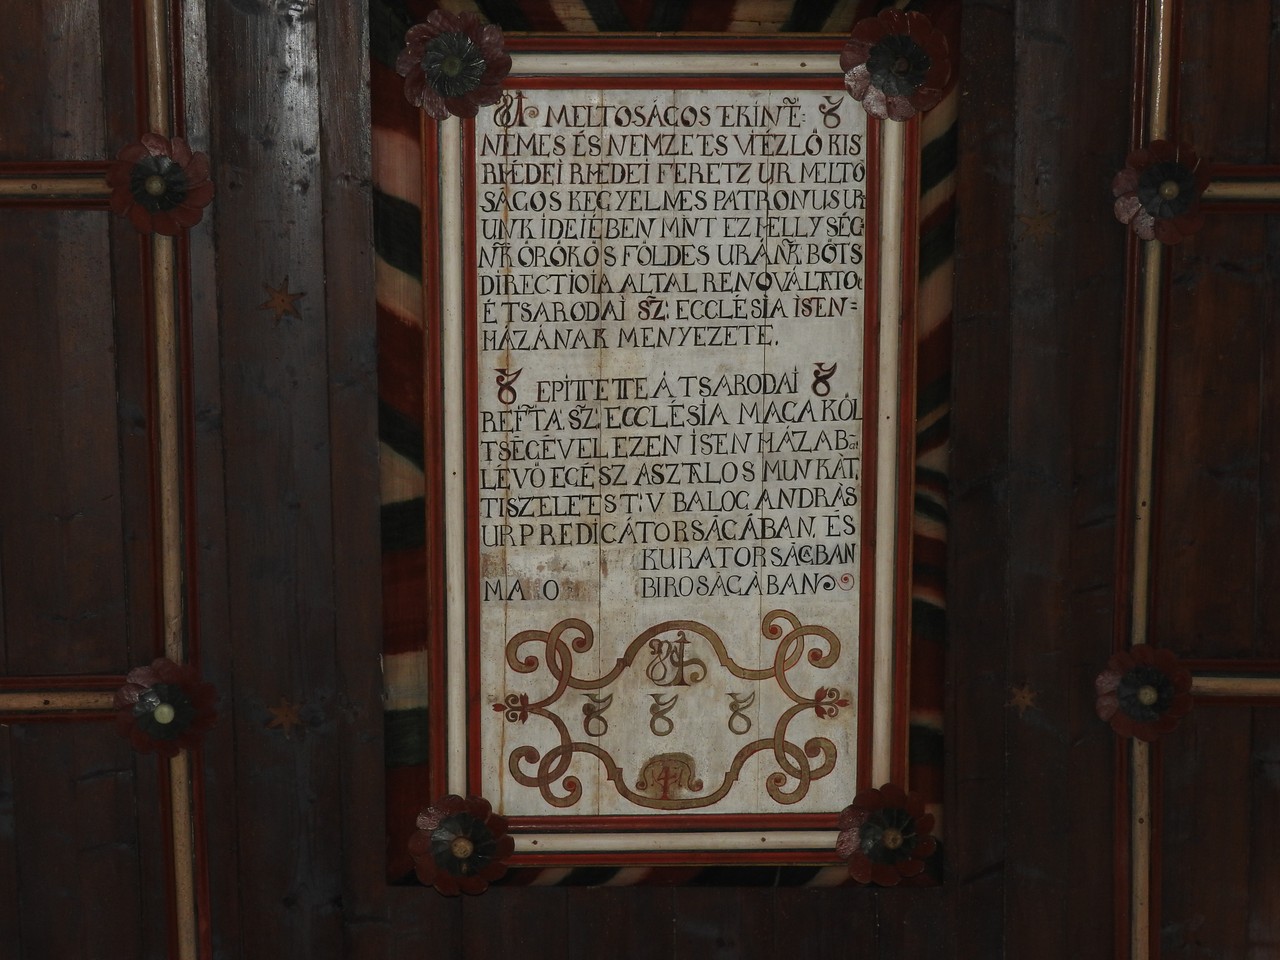 MELTOSÁGOS TEKINTE:
NEMES ÉS NEMZETES VIEZLŐ KIS
RHÉDEI RHEDEI FERETZ UR MELTO
SÁGOS KEGYELMES PATRONUS UR
UNK IDEIEBEN MINT EZ HELLYSÉG
NK ÖRÖKÖS FÖLDES URÁNK BÖTS
DIRECTIOIA ALTAL RENOVÁLTATO
É TSARODAI SZ: ECCLÉSIA ISEN=
HÁZÁNAK MENYEZETE.
EPITTETTE Á TSARODAI
REFTA SZ: ECCLÉSIA MAGA KÖL
TSÉGÉVEL EZEN ISEN HÁZAB
LÉVŐ EGÉSZ ASZTALOS MUNKÁT,
TISZELETES T: V BALOG ANDRÀS
UR PREDICÁTORSÁGÁBAN, ÉS
KURATORSÁGÁBAN
MA O BIROSÁGÁBAN